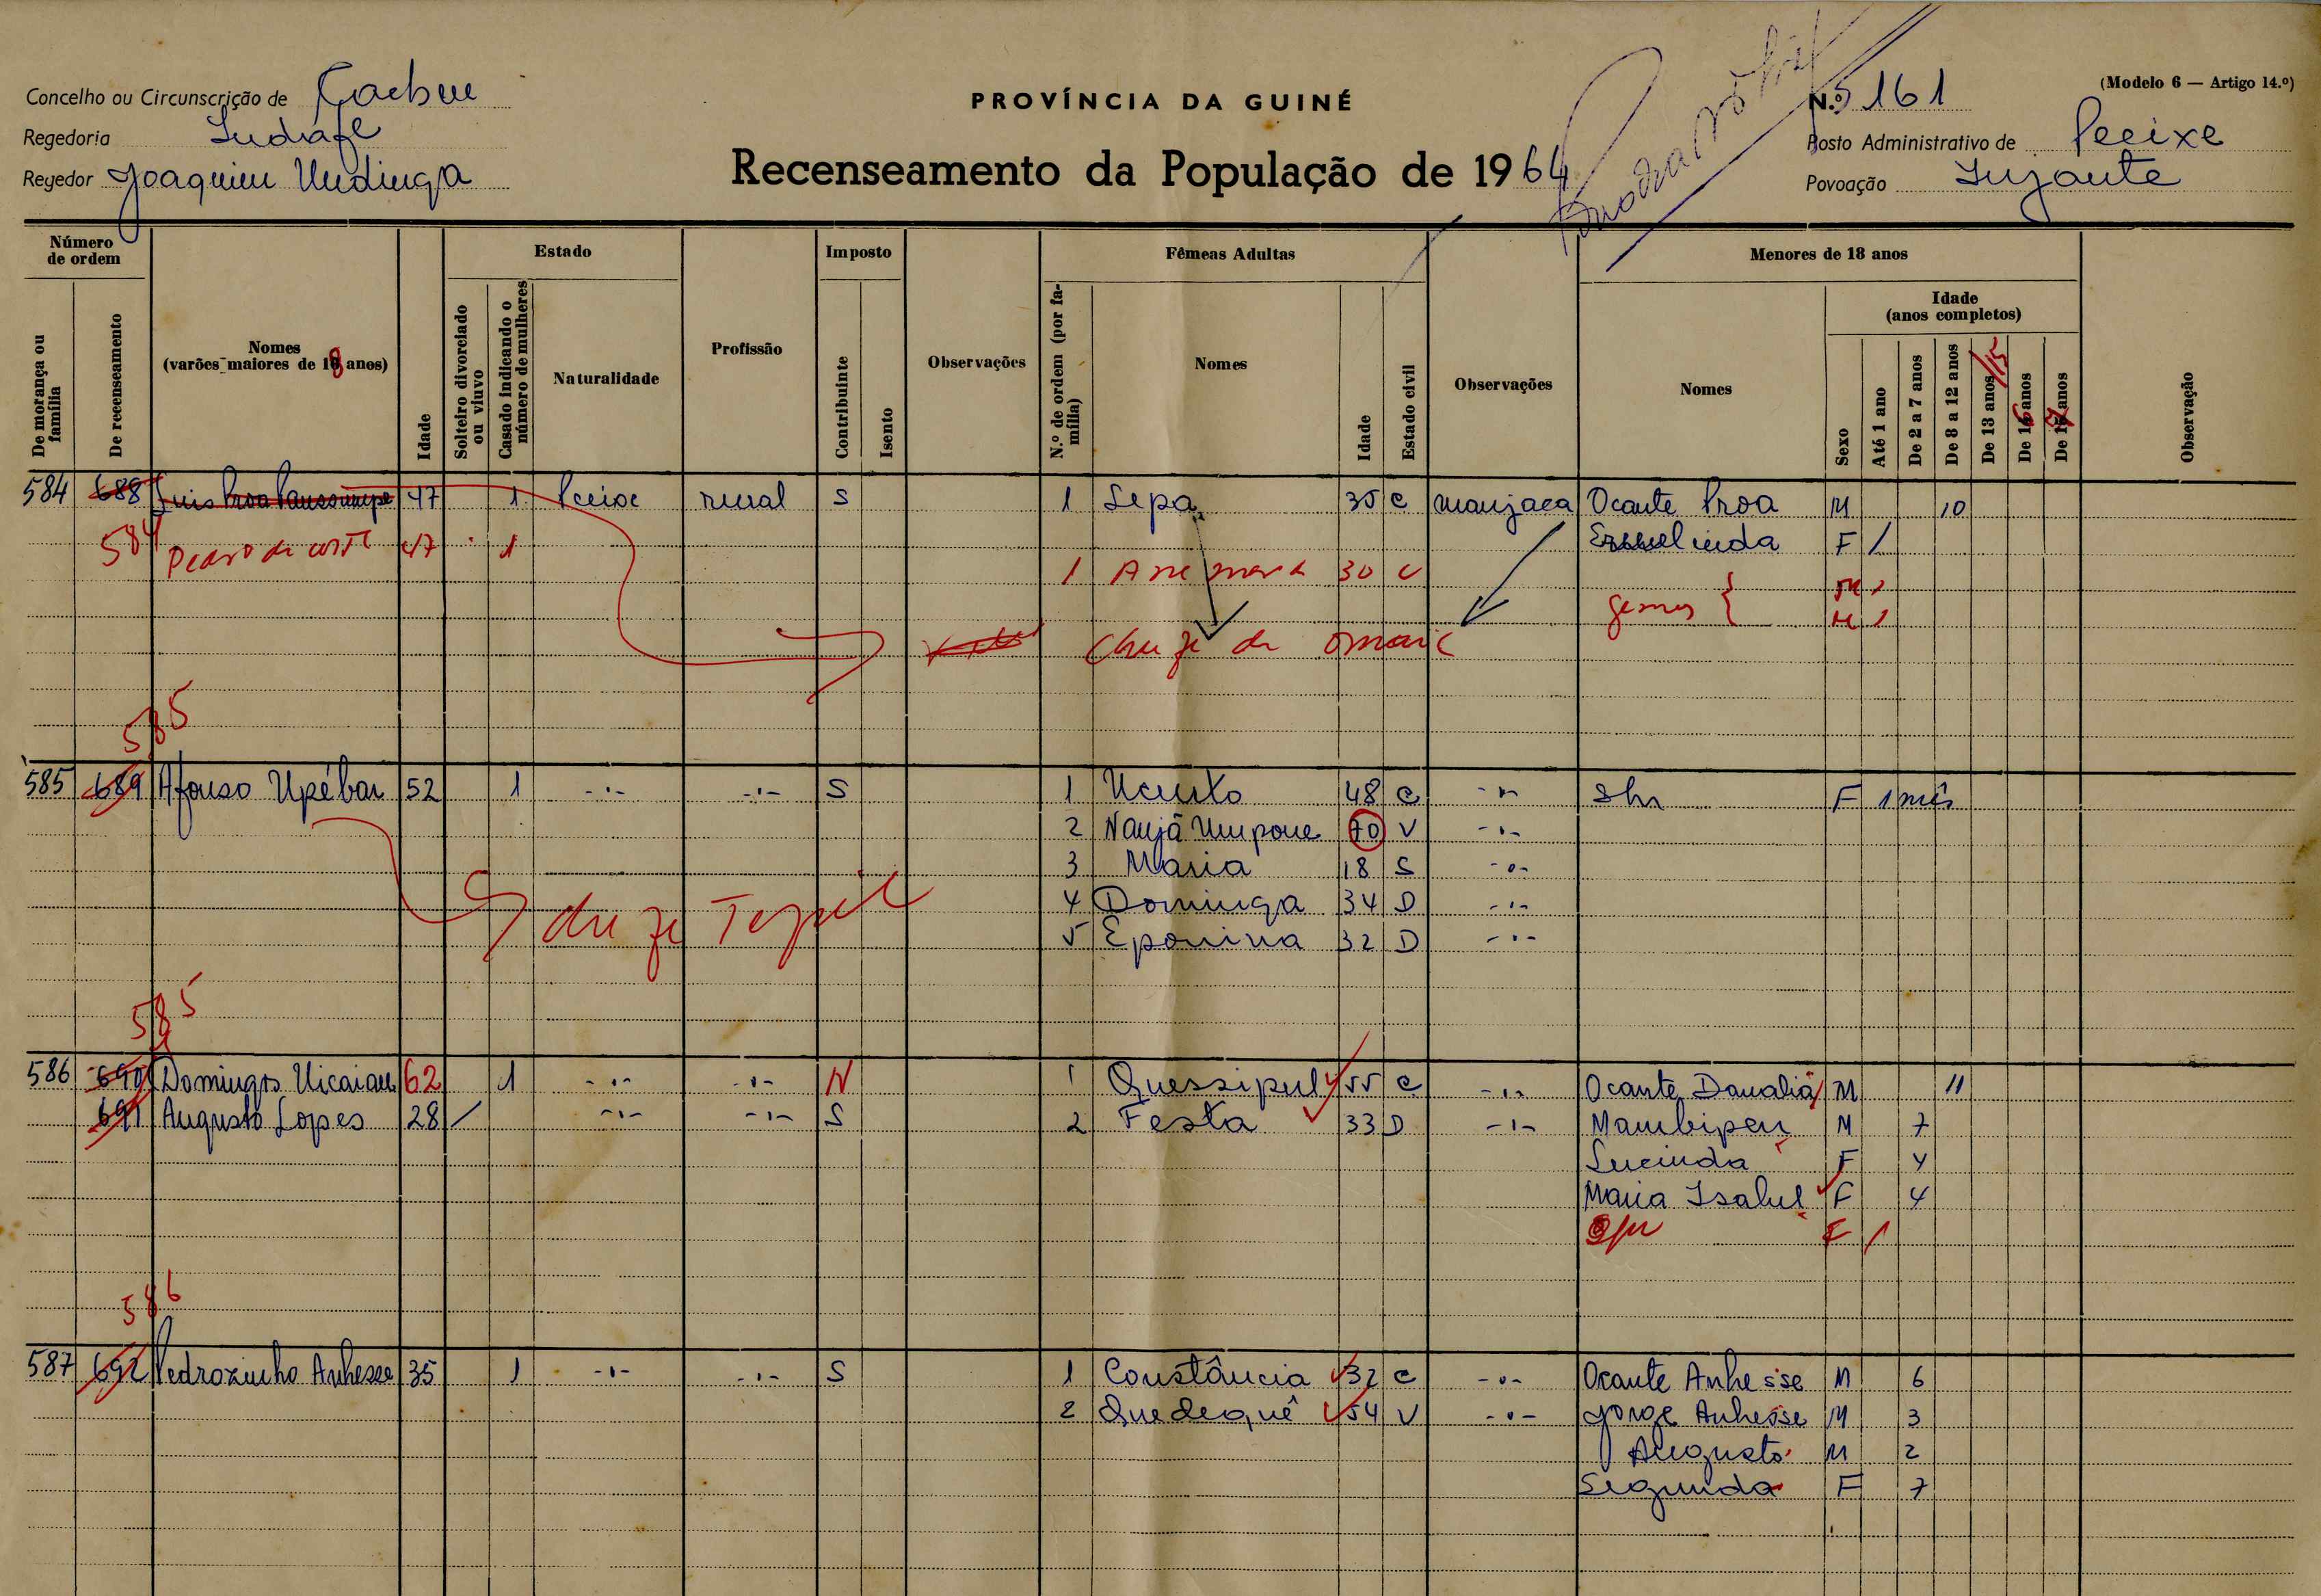 Concelho ou Circunscrição de Cacheu
PROVÍNCIA DA GUINÉ
N.º 5161
(Modelo 6 — Artigo 14.º)
Regedoria
Posto Administrativo de Pecixe
Regedor Joaquim Undinga
Recenseamento da População de 1964
Povoação
Número de ordem
De morança ou família
De recenseamento
Nomes
(varões maiores de 18 anos)
Idade
Estado
Solteiro divorciado ou viuvo
Casado indicando o número de mulheres
Naturalidade
Profissão
Imposto
Contribuinte
Isento
Observações
Fêmeas Adultas
N.º de ordem (por família)
Nomes
Idade
Estado civil
Observações
Menores de 18 anos
Nomes
Sexo
Idade
(anos completos)
Até 1 ano
De 2 a 7 anos
De 8 a 12 anos
De 13 anos /15
De 16 anos
De 17 anos
Observação
584 688 Luis 47 1 Pecixe rural S 1 Sepa 35 C manjaca Ocante Proa M 10
584 Pedro da 47 1 Ermelinda F /
1 30 C
gemeos { M 1
M 1
585
585 689 Afonso Upébai 52 1 -"- -"- S 1 Ucunto 48 C -"- S/n F 1 mês
2 Naujã Umpone 70 V -"-
3 Maria 18 S -"-
4 Dominga 34 D -"-
5 Eponina 32 D -"-
585
586 690 Domingos Uicaiau 62 1 -"- -"- N 1 Quessipul 55 C -"- Ocante Danaliã M 11
691 Augusto Lopes 28 / -"- -"- S 2 Festa 33 D -"- Mambipen M 7
Lucinda F 4
Maria Isabel F 4
S/n F /
586
587 692 Pedrozinho Anhesse 35 1 -"- -"- S 1 Constância 32 C -"- Ocante Anhesse M 6
2 Quedequê 54 V -"- Jorge Anhesse M 3
Augusto M 2
Segunda F 7